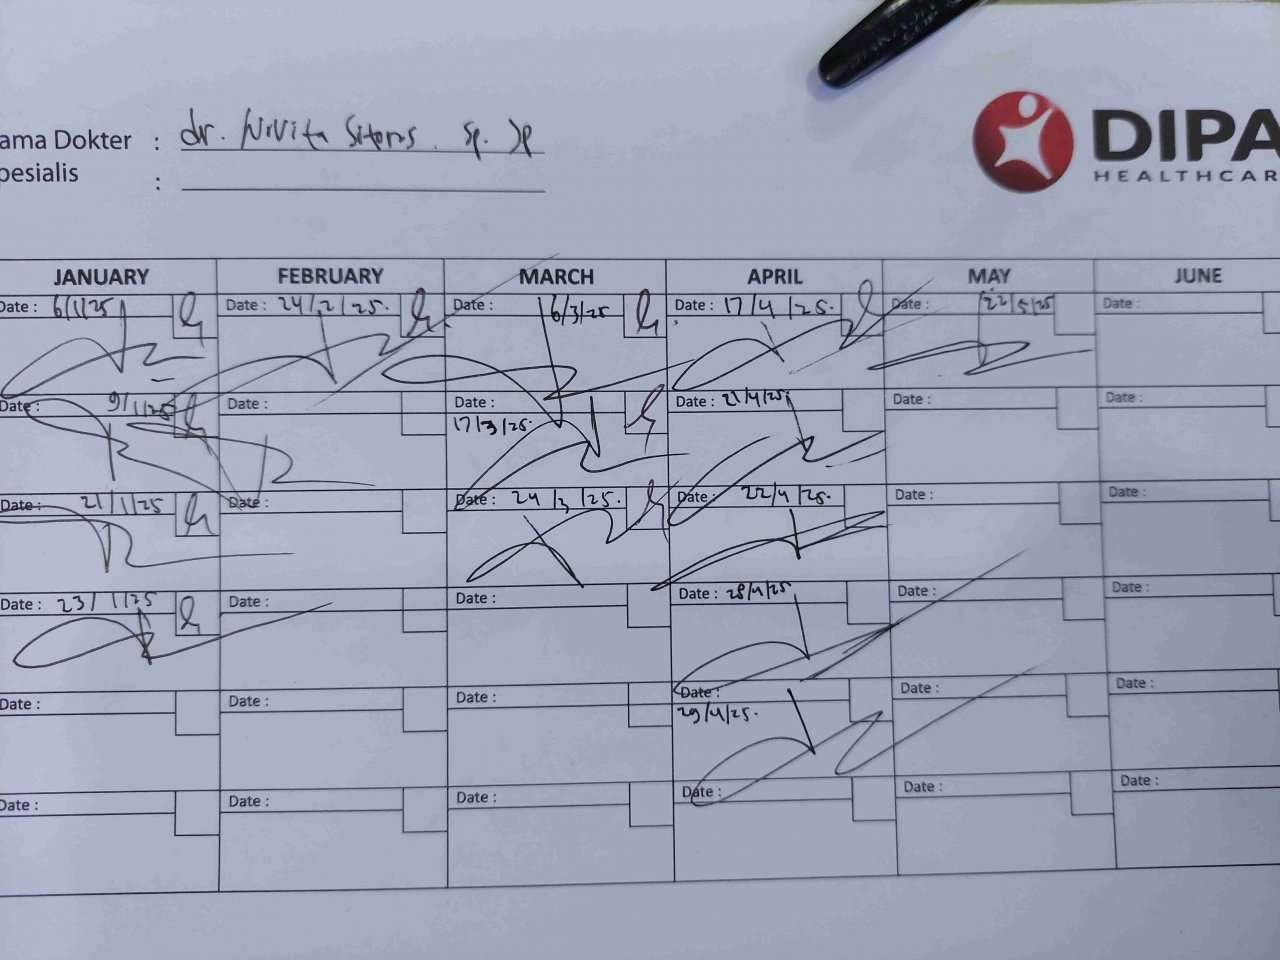 ama Dokter : dr. Novita Sitorus. Sp. JP
pesialis :
DIPA
HEALTHCAR
JANUARY FEBRUARY MARCH APRIL MAY JUNE
Date : 6/1/25 Date : 24/2/25. Date : 6/3/25 Date : 17/4/25. Date : 22/5/25 Date :
Date : 9/1/25 Date : Date : 17/3/25. Date : 21/4/25 Date : Date :
Date : 21/1/25 Date : Date : 24/3/25. Date : 22/4/25. Date : Date :
Date : 23/1/25 Date : Date : Date : 28/4/25 Date : Date :
Date : Date : Date : Date : 29/4/25. Date : Date :
Date : Date : Date : Date : Date : Date :